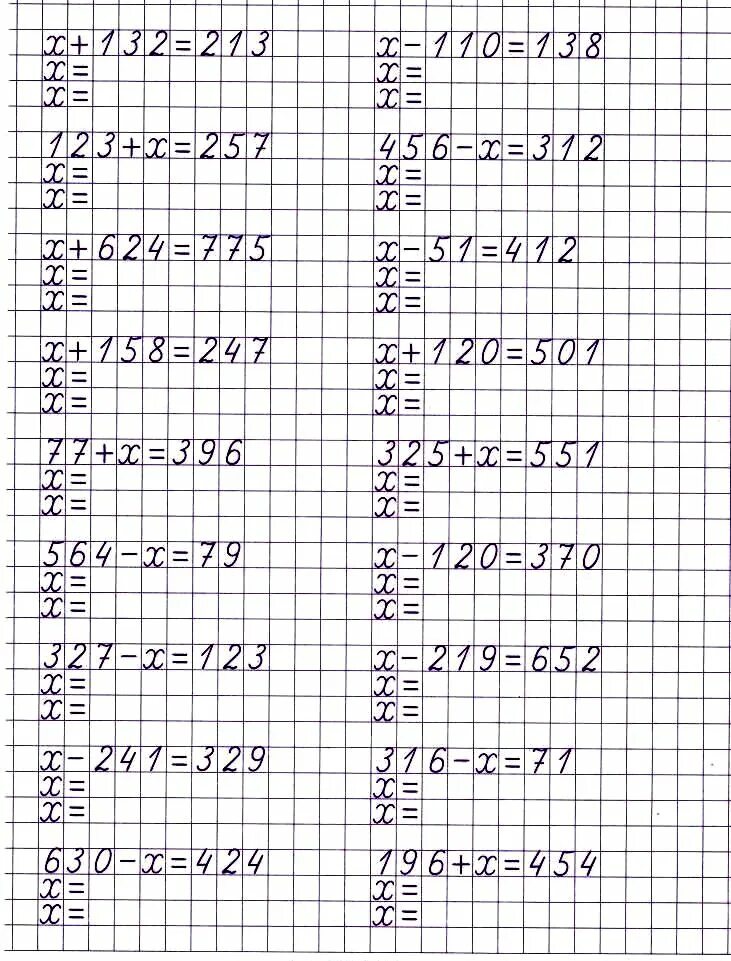 x+132=213
x=
x=
123+x=257
x=
x=
x+624=775
x=
x=
x+158=247
x=
x=
77+x=396
x=
x=
564-x=79
x=
x=
327-x=123
x=
x=
x-241=329
x=
x=
630-x=424
x=
x=
x-110=138
x=
x=
456-x=312
x=
x=
x-51=412
x=
x=
x+120=501
x=
x=
325+x=551
x=
x=
x-120=370
x=
x=
x-219=652
x=
x=
316-x=71
x=
x=
196+x=454
x=
x=